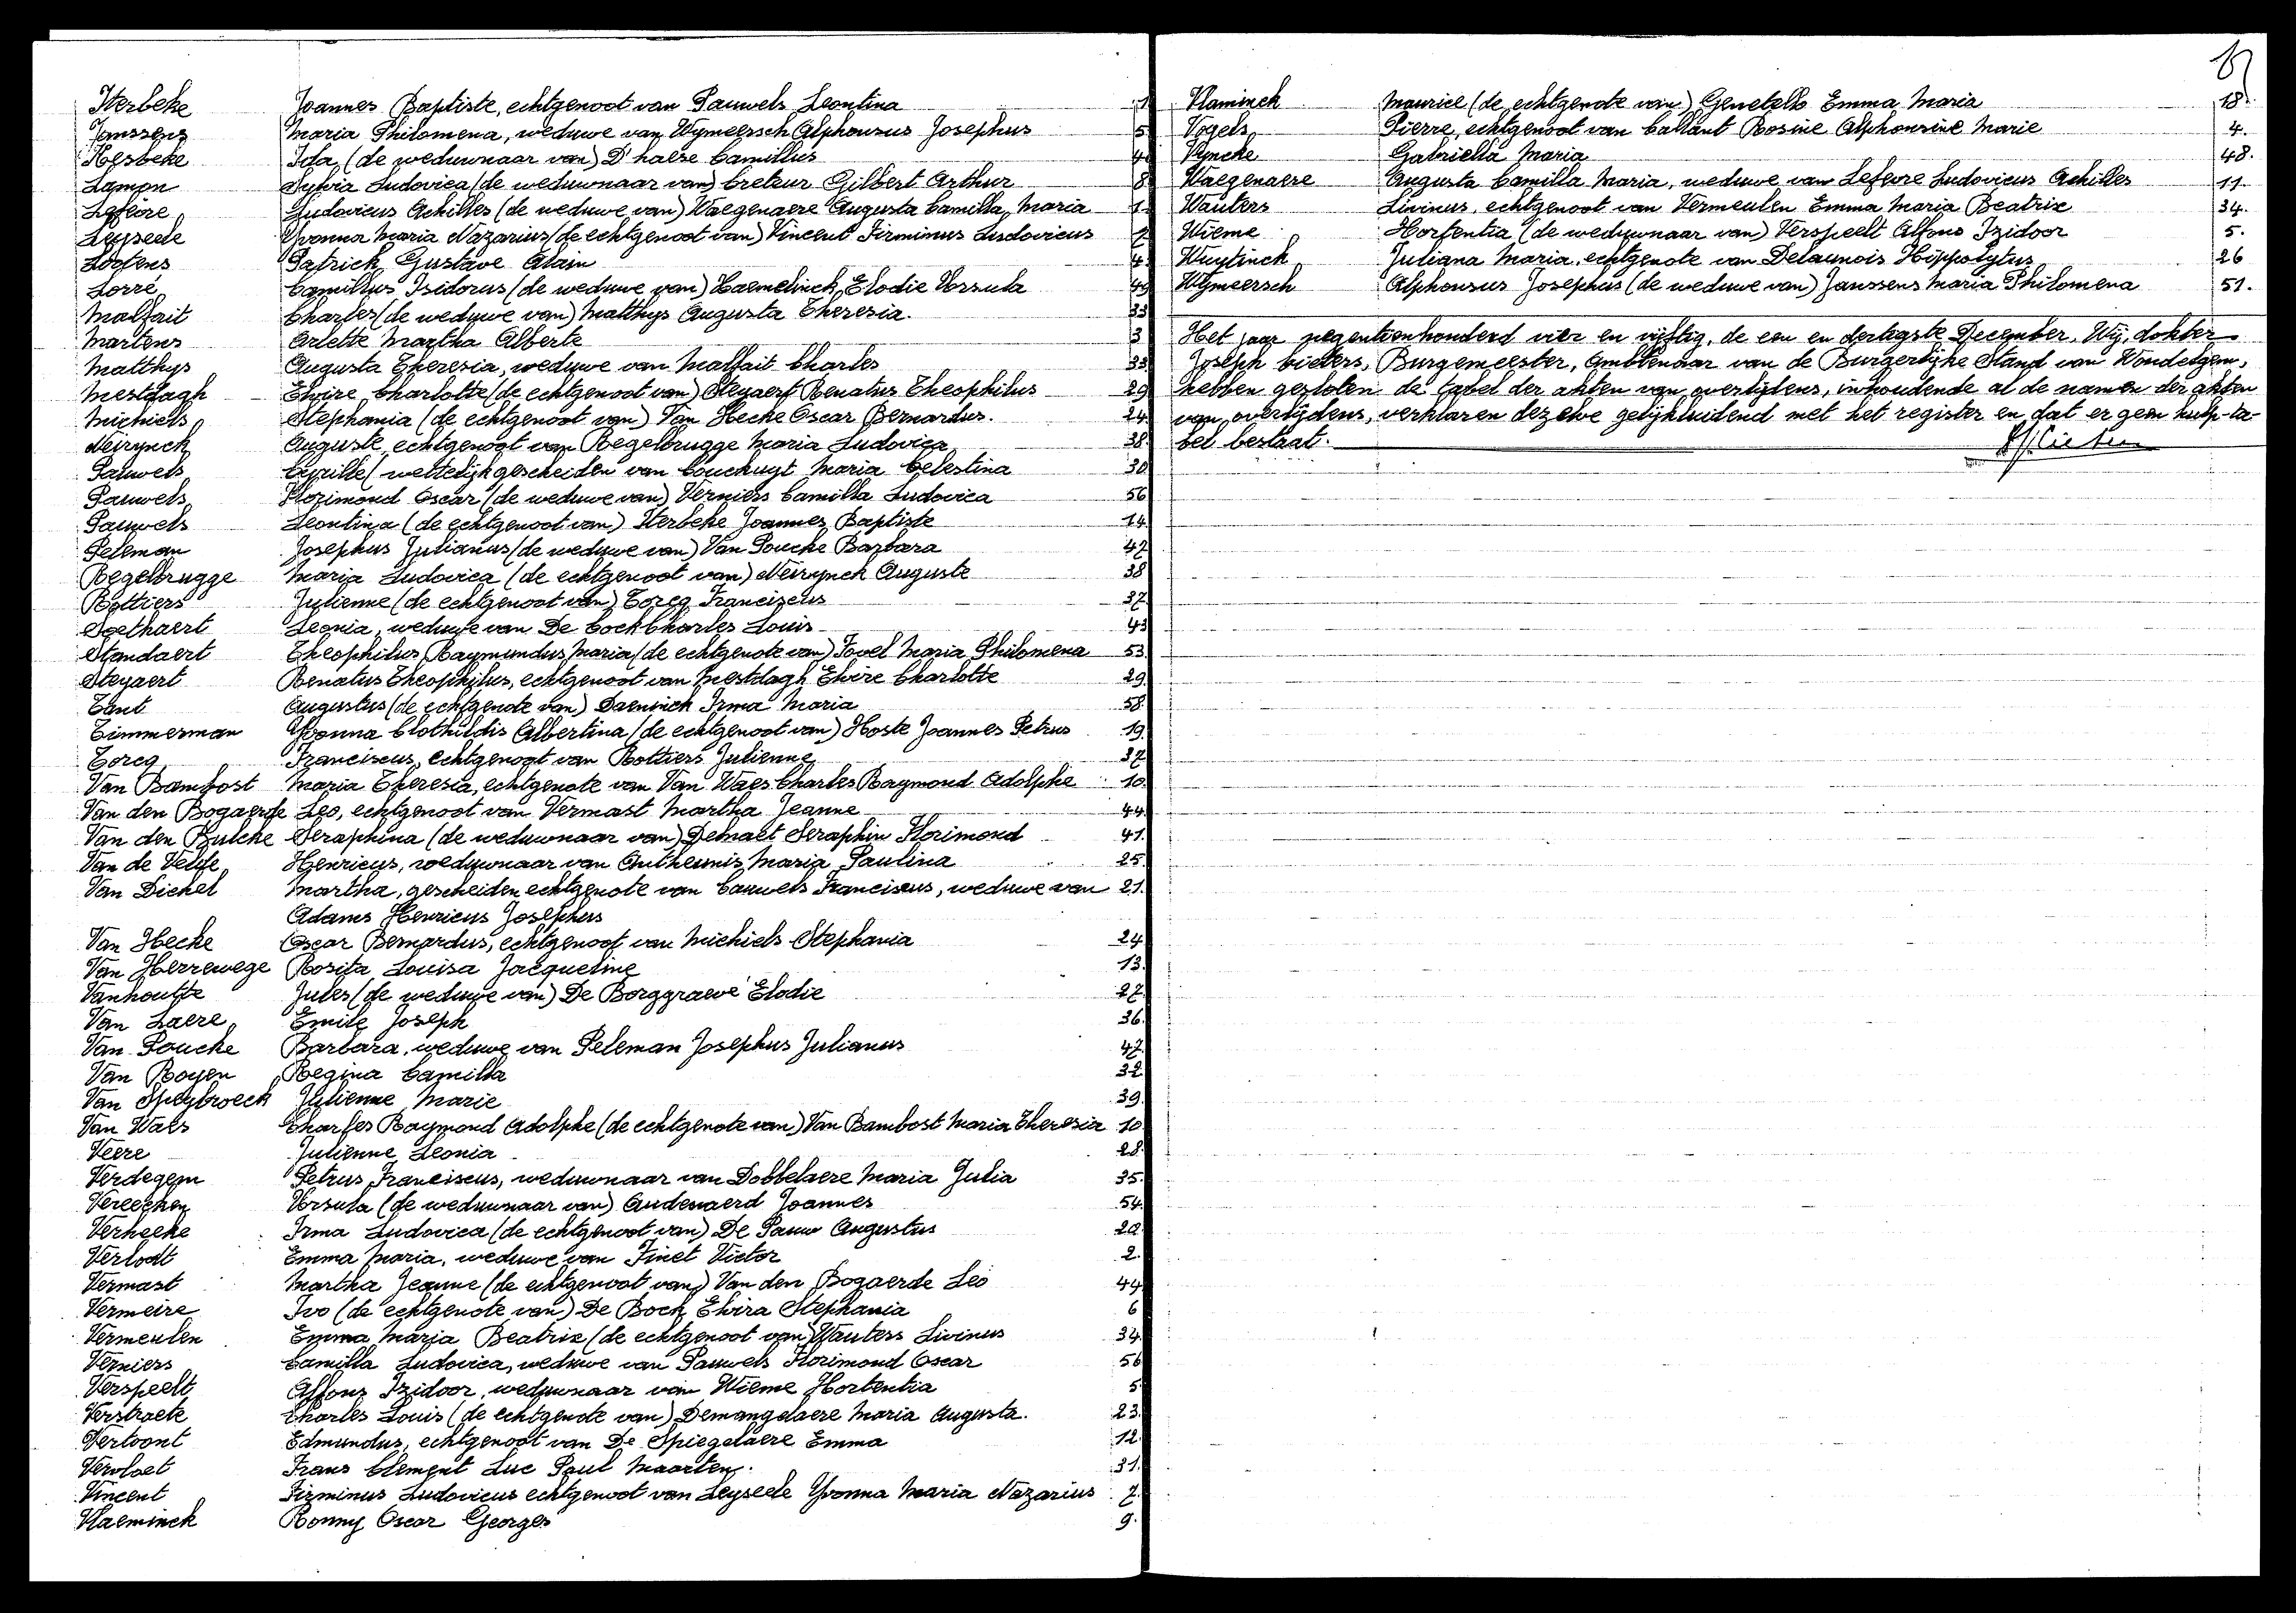 Iterbeke Joannes Baptiste, echtgenoot van Pauwels Leontina
Janssens Maria Philomena, weduwe van Wymeersch Alphonsus Josephus 5
Kesbeke Ida (de weduwnaar van) D'haese Camillus
Lamon Sylvia Ludovica (de weduwnaar van) Creteur Gilbert Arthur 8
Lefevre Ludovicus Achilles (de weduwe van) Waegenaere Augusta Camilla Maria
Leyseele Yvonna Maria Nazarius (de echtgenoot van) Vincent Firminus Ludovicus 7
Lootens Patrick Gustave Alain 4
Lorre Camillus Isidorus (de weduwe van) Haemelinck Elodie Ursula
Malfait Charles (de weduwe van) Matthys Augusta Theresia. 33
Martens Arlette Martha Alberte 3
Matthys Augusta Theresia, weduwe van Malfait Charles 33
Mestdagh Elvire Charlotte (de echtgenoot van) Steyaert Renatus Theophilus 29
Michiels Stephania (de echtgenoot van) Van Hecke Oscar Bernardus. 24
Neirynck Auguste, echtgenoot van Regelbrugge Maria Ludovica 38
Pauwels Cyrille (wettelijk gescheiden van Couchuyt Maria Celestina 30
Pauwels Florimond Oscar (de weduwe van) Verniers Camilla Ludovica 56
Pauwels Leontina (de echtgenoot van) Iterbeke Joannes Baptiste 14
Peleman Josephus Julianus (de weduwe van) Van Poucke Barbara 47
Regelbrugge Maria Ludovica (de echtgenoot van) Neirynck Auguste 38
Rottiers Julienne (de echtgenoot van) Torcq Franciscus 37
Soethaert Leonia, weduwe van De Cock Charles Louis 43
Standaert Theophilus Raymundus Maria (de echtgenote van) Fovel Maria Philomena 53
Steyaert Renatus Theophilus, echtgenoot van Mestdagh Elvire Charlotte 29.
Tant Augustus (de echtgenote van) Daeninck Irma Maria 58
Timmerman Yvonna Clothildis Albertina (de echtgenoot van) Hoste Joannes Petrus 19.
Torcq Franciscus, echtgenoot van Rottiers Julienne 37
Van Bambost Maria Theresia, echtgenote van Van Waes Charles Raymond Adolphe 10.
Van den Bogaerde Leo, echtgenoot van Vermast Martha Jeanne 44.
Van den Bulcke Seraphina (de weduwnaar van) Demaet Seraphin Florimond 41.
Van de Velde Henricus, weduwnaar van Antheunis Maria Paulina 25
Van Dickel Martha, gescheiden echtgenote van Cauwels Franciscus, weduwe van 21.
Adams Henricus Josephus
Van Hecke Oscar Bernardus, echtgenoot van Michiels Stephania 24
Van Herrewege Rosita Louisa Jacqueline 13.
Vanhoutte Jules (de weduwe van) De Borggraeve Elodie 27.
Van Laere Emile Joseph 36.
Van Poucke Barbara, weduwe van Peleman Josephus Julianus 47.
Van Royen Regina Camilla 32
Van Speybroeck Julienne Marie 39.
Van Waes Charles Raymond Adolphe (de echtgenote van) Van Bambost Maria Theresia 10
Veere Julienne Leonia 28.
Verdegem Petrus Franciscus, weduwnaar van Dobbelaere Maria Julia 35.
Vereecken Ursula (de weduwnaar van) Audenaerd Joannes 54.
Verheeke Irma Ludovica (de echtgenoot van) De Pauw Augustus
Verlodt Emma Maria, weduwe van Finet Victor 2.
Vermast Martha Jeanne (de echtgenoot van) Van den Bogaerde Leo 44
Vermeire Ivo (de echtgenote van) De Bock Elvira Stephania 6
Vermeulen Emma Maria Beatrix (de echtgenoot van) Wauters Livinus 34.
Verniers Camilla Ludovica, weduwe van Pauwels Florimond Oscar 56
Verspeelt Alfons Izidoor, weduwnaar van Wieme Hortentia 5
Verstraete Charles Louis (de echtgenote van) Demangelaere Maria Augusta. 23.
Vertoont Edmundus, echtgenoot van De Spiegelaere Emma 12.
Vervloet Frans Clement Luc Paul Maarten. 31.
Vincent Firminus Ludovicus echtgenoot van Leyseele Yvonna Maria Nazarius 7.
Vlaeminck Ronny Oscar Georges 9.
Vlaminck Maurice (de echtgenote van) Genetello Emma Maria 18.
Vogels Pierre, echtgenoot van Callant Rosine Alphonsine Marie 4.
Vyncke Gabriella Maria 48.
Waegenaere Augusta Camilla Maria, weduwe van Lefevre Ludovicus Achilles 11.
Wauters Livinus, echtgenoot van Vermeulen Emma Maria Beatrix 34.
Wieme Hortentia (de weduwnaar van) Verspeelt Alfons Izidoor 5.
Wuytinck Juliana Maria, echtgenote van Delaunois Hippolytus 26
Wymeersch Alphonsus Josephus (de weduwe van) Janssens Maria Philomena 51.
Het jaar negentienhonderd vier en vijftig, de een en dertigste December. Wij, dokter
Joseph Cieters, Burgemeester, Ambtenaar van de Burgerlijke Stand van Wondelgem,
hebben gesloten de tabel der akten van overlijdens, inhoudende al de namen der akten
van overlijdens, verklaren dezelve gelijkluidend met het register en dat er geen hulp-ta-
bel bestaat.